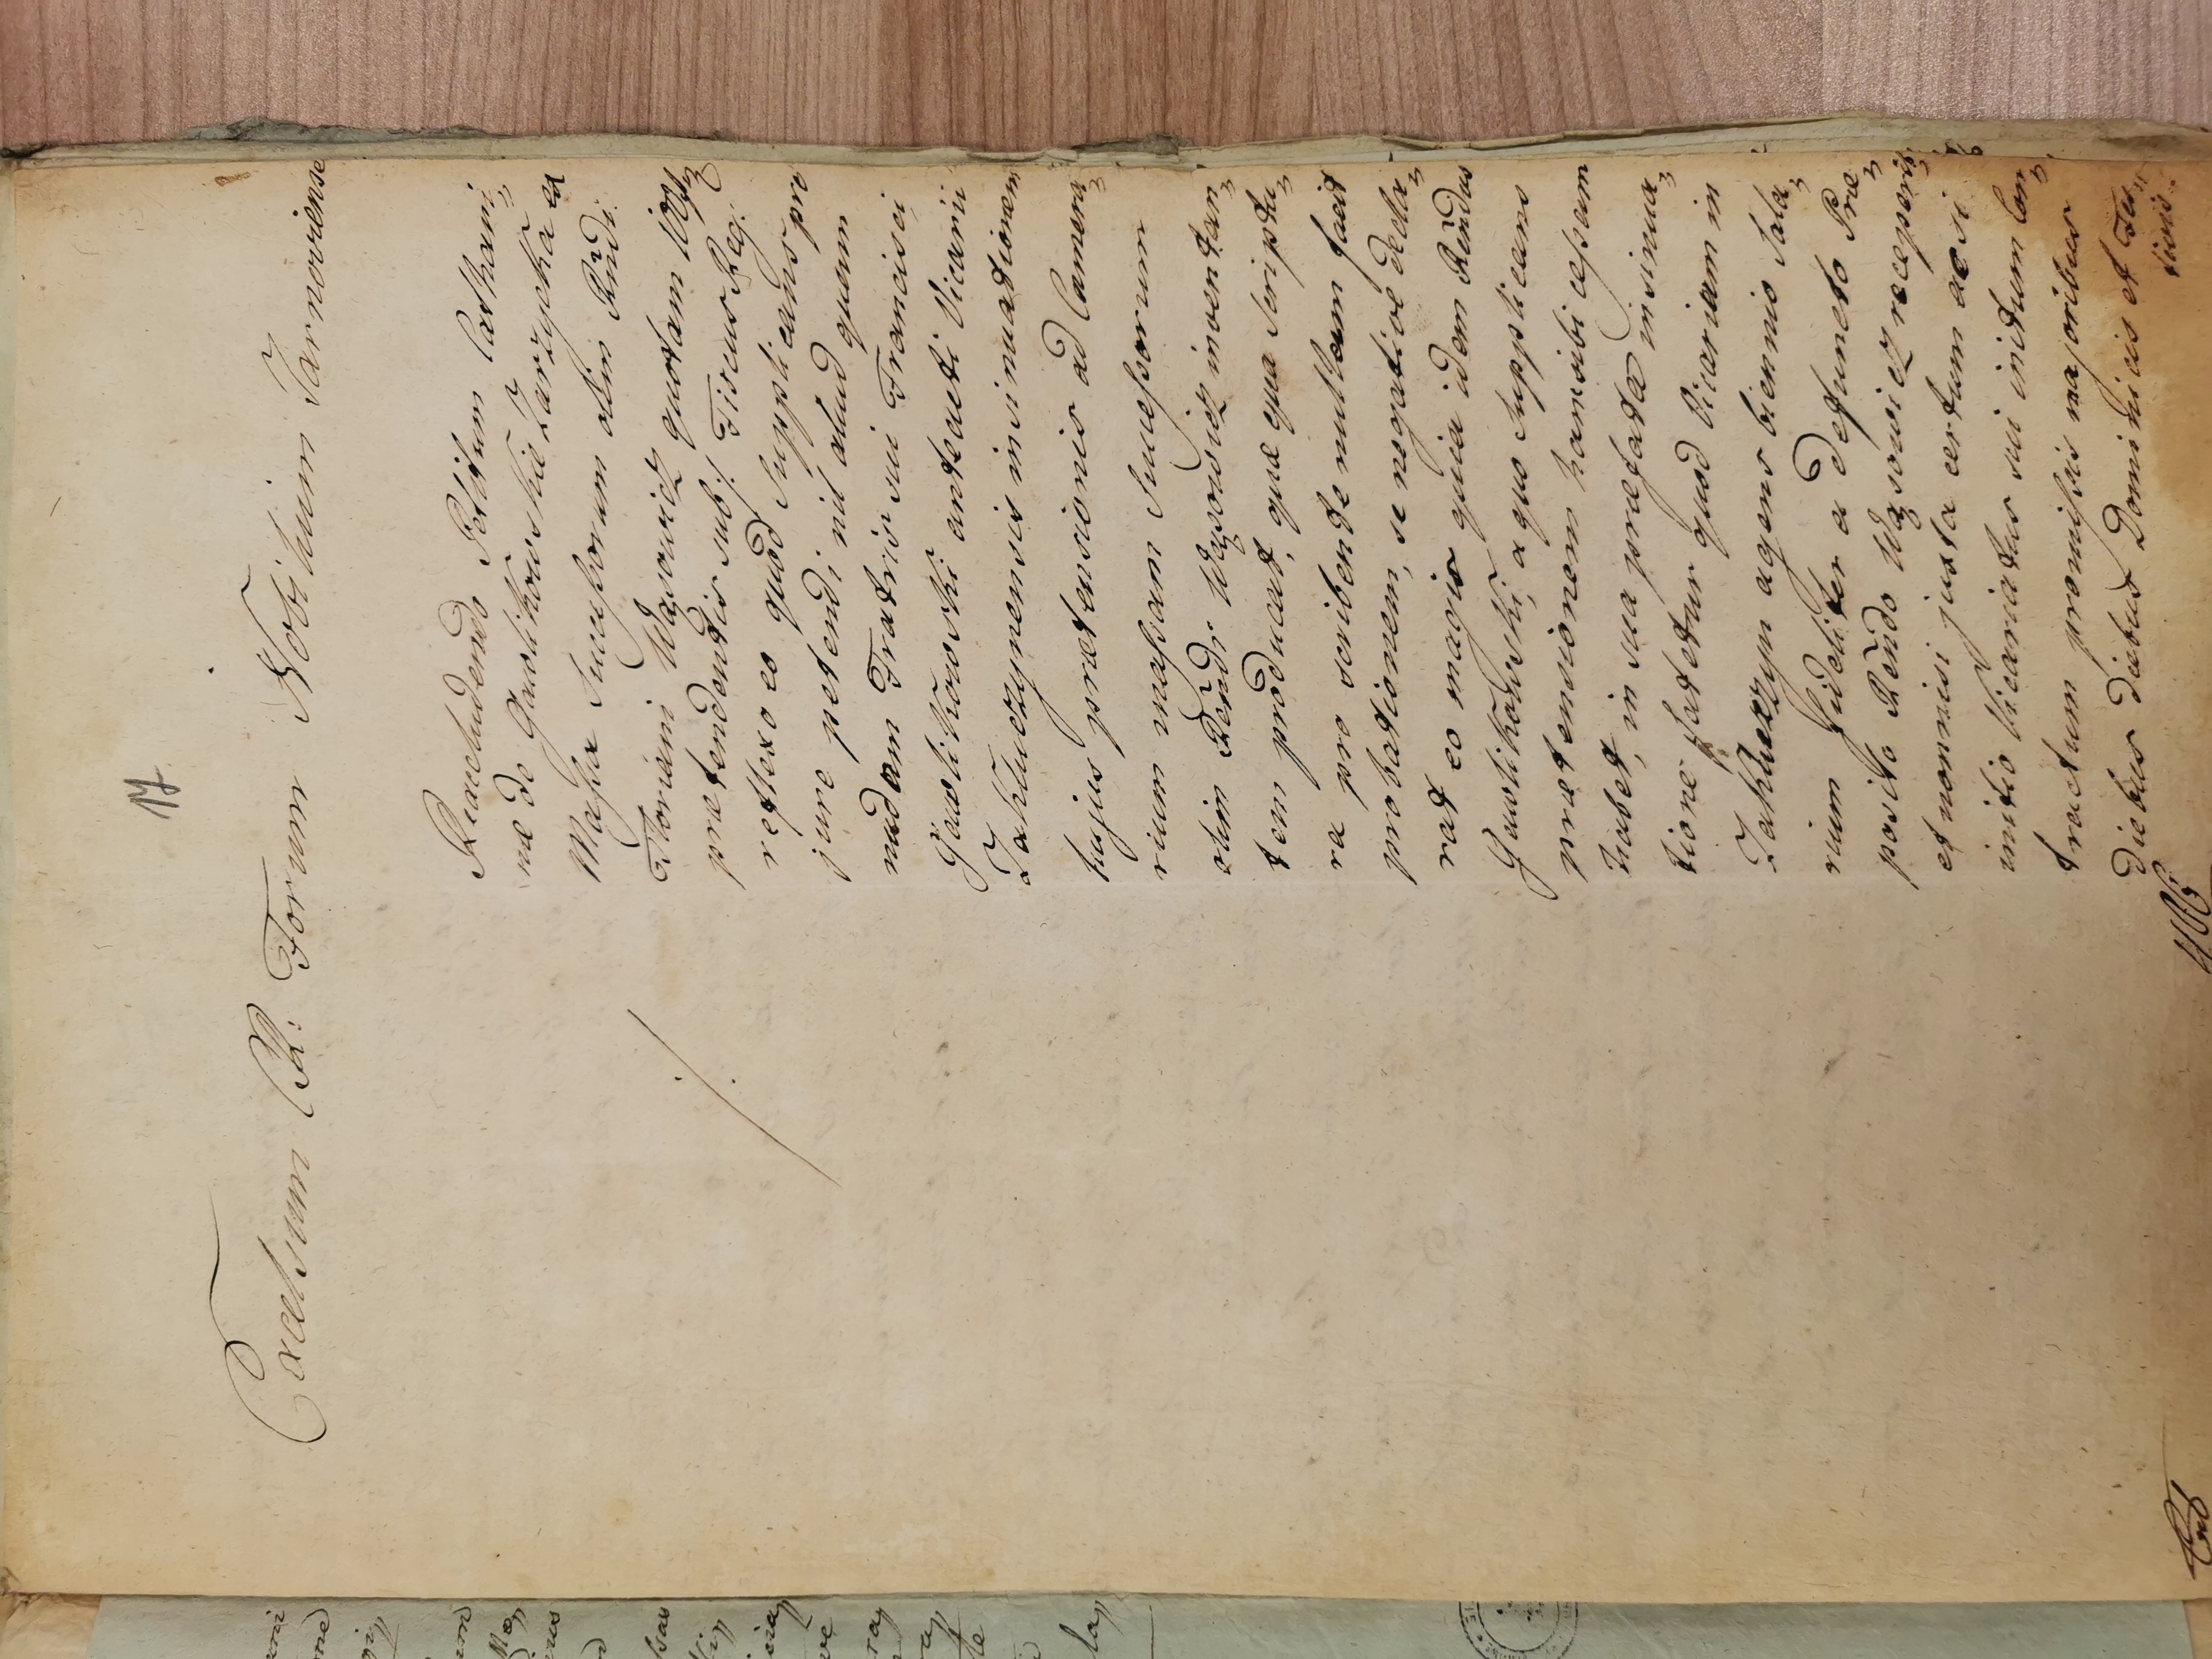 17
Excelsum CR: Forum Nobilium Tarnoviense
Reexcludendo Petitum Cathari„
næ de Gawlikowskie Zarzycka ex
Massa Successorum olim Rndi
Floriani Wąsowicz quotam
prætendentis sub ∕. Fiscus Reg:
reflexo eo quod Supplicans pro
jure petendi nil aliud quam
nudam Fratris sui Francisci
Gawlikowski anteacti Vicarii
Zakluczynensis insinuationem
hujus prætensionis ad Camera„
rium massam Successorum
olim Rendi Wąsowicz inventan„
tem producat, quæ qua Scriptu„
ra pro scribente nullam facit
probationem, se negative decla„
rat eo magis quia idem Rendus
Gawlikowski, a quo Supplicans
prætensionem hancsibi cessam
habet, in sua præfata insinua„
tione fatetur quod Vicariam in
Zakluczyn agens biennio Sala„
rium fideliter a defuncto Præ„
posito Rendo Wąsowicz receperit
et nonnisi juxta certum acsi
initio Vicariatus sui initum Con„
tractum promissis majoribus
diebus diebus Dominicis et Fu„